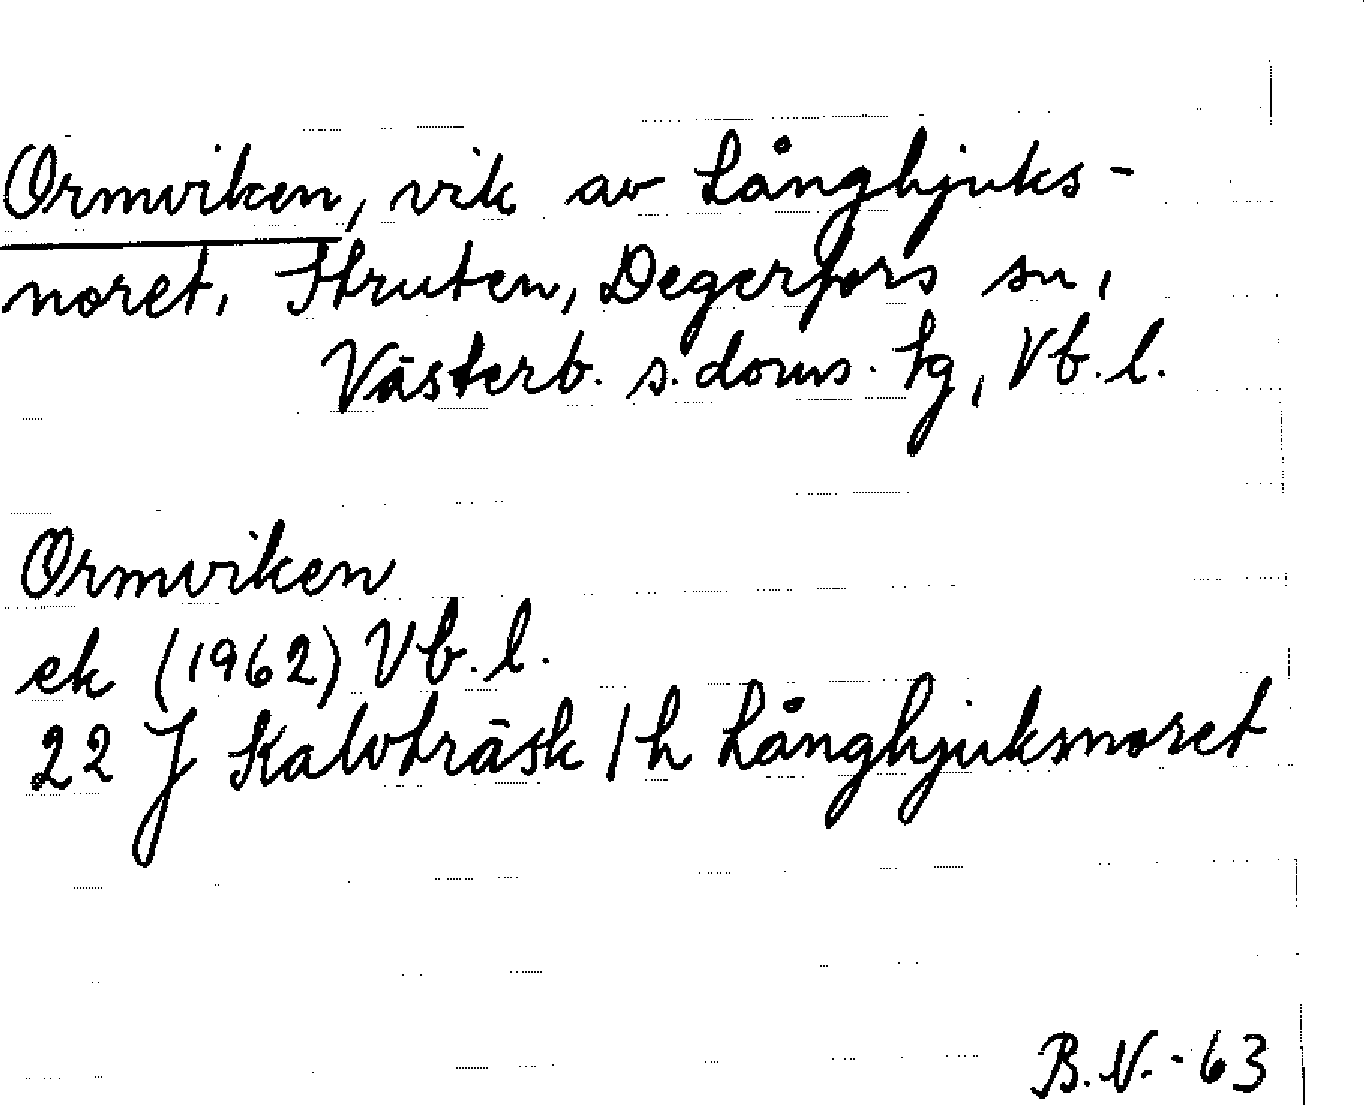 Ormviken, vik av Långhjuks-
noret, Struten, Degerfors sn,
Västerb. s. doms. tg, Vb. l.
Ormviken
ek (1962) Vb. l.
22 J Kalvträsk / h Långhjuksnoret
B.N.-63